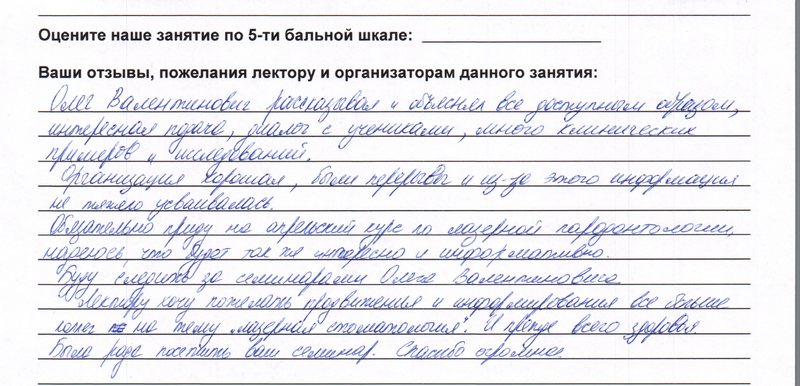 Оцените наше занятие по 5-ти бальной шкале:
Ваши отзывы, пожелания лектору и организаторам данного занятия:
Олег Валентинович рассказывал и объяснял все доступным образом,
интересная подача, диалог с учениками, много клинических
примеров и исследований.
Организация хорошая, были перерывы и из-за этого информация
не тяжело усваивалась.
Обязательно приду на апрельский курс по лазерной пародонтологии,
надеюсь, что будет так же интересно и информативно.
Буду следить за семинарами Олега Валентиновича
Лектору хочу пожелать продвижения и информирования все больше
коллег на тему "лазерная стоматология". И прежде всего здоровья
Была рада посетить ваш семинар. Спасибо огромное